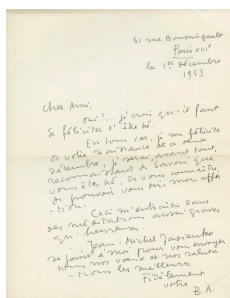 51 rue Boussingault
Paris XIIIe
le 1er décembre
1953
Cher Ami,
oui !... je crois qu'il faut
se féliciter d'être né.
En tous cas, je me félicite
de votre naissance de ce
décembre, je serai, avant tout,
reconnaissant de savoir que
vous êtes né, de vous connaître,
de pouvoir vous
-tion.
Ceci m'entraîne dans
des méditations aussi graves
qu'heureuses.
Jean-Michel
se joint à moi pour vous envoyer
tous nos vœux et nos saluta
-tions les meilleures.
Fidèlement
votre
B.A.